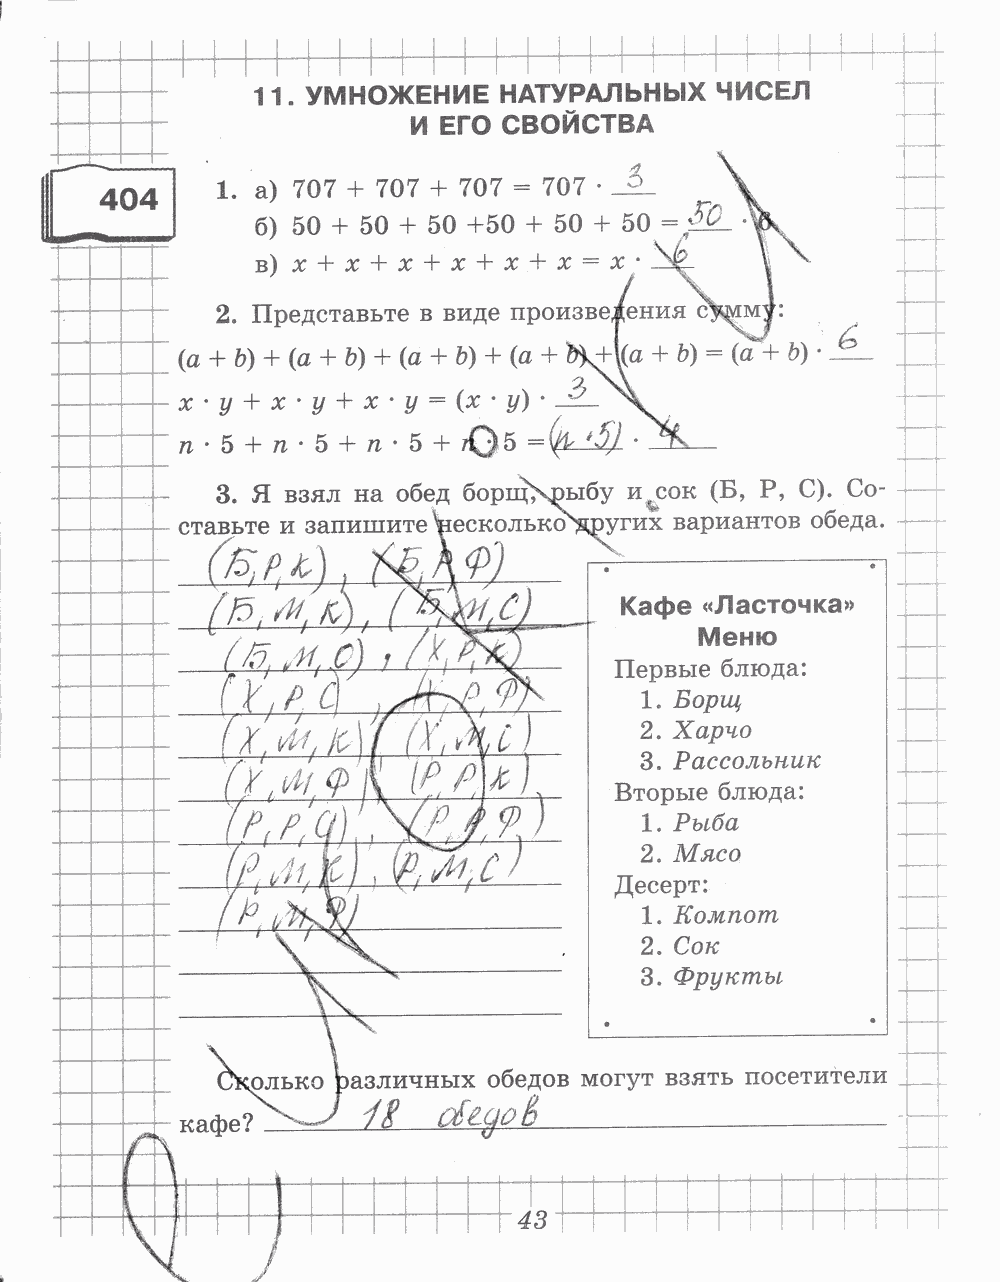 11. УМНОЖЕНИЕ НАТУРАЛЬНЫХ ЧИСЕЛ
И ЕГО СВОЙСТВА
404
1. а) 707 + 707 + 707 = 707 · 3
б) 50 + 50 + 50 +50 + 50 + 50 = 50 · 6
в) x + x + x + x + x + x = x · 6
2. Представьте в виде произведения сумму:
(a + b) + (a + b) + (a + b) + (a + b) + (a + b) = (a + b) · 6
x · y + x · y + x · y = (x · y) · 3
n · 5 + n · 5 + n · 5 + n · 5 = (n · 5) · 4
3. Я взял на обед борщ, рыбу и сок (Б, Р, С). Со-
ставьте и запишите несколько других вариантов обеда.
(Б, Р, К), (Б, Р, Ф)
(Б, М, К), (Б, М, С)
(Б, М, О), (Х, Р, К)
(Х, Р, С), (Х, Р, Ф)
(Х, М, К), (Х, М, С)
(Х, М, Ф), (Р, Р, К)
(Р, Р, С), (Р, Р, Ф)
(Р, М, К), (Р, М, С)
(Р, М, Ф)
Кафе «Ласточка»
Меню
Первые блюда:
1. Борщ
2. Харчо
3. Рассольник
Вторые блюда:
1. Рыба
2. Мясо
Десерт:
1. Компот
2. Сок
3. Фрукты
Сколько различных обедов могут взять посетители
кафе? 18 обедов
43